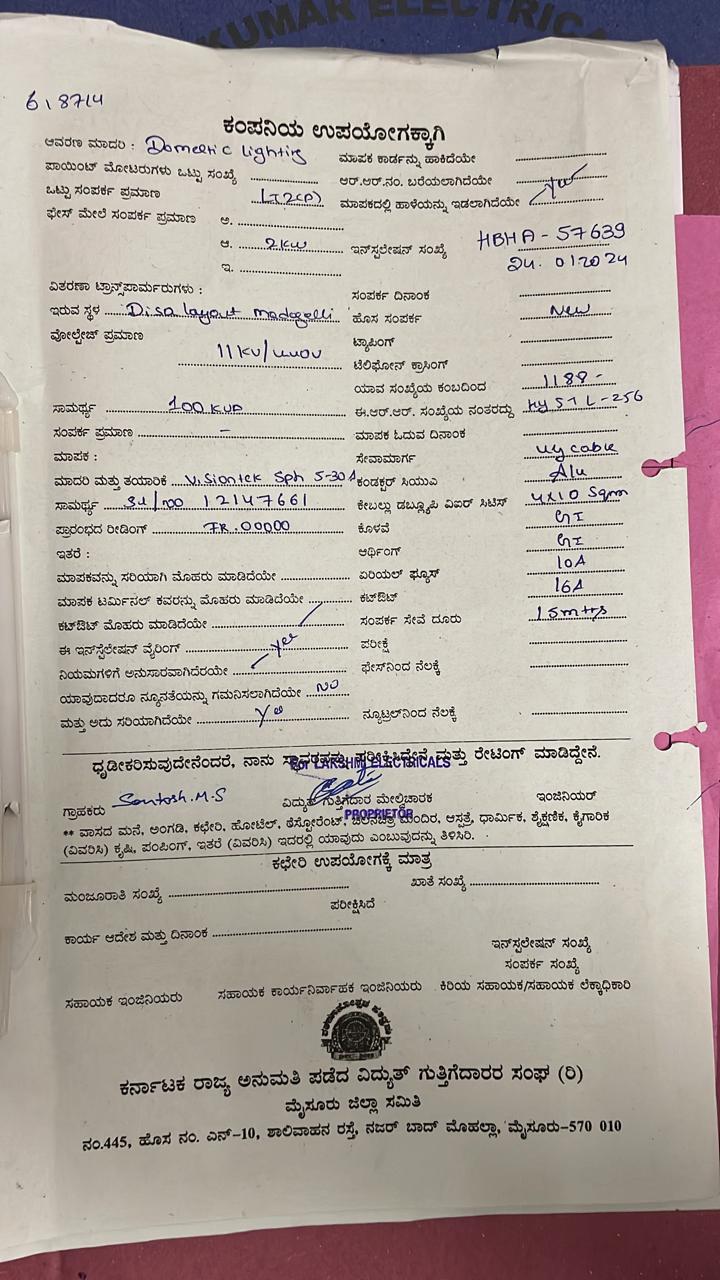 KUMAR ELECTRICAL
6,8714
ಕಂಪನಿಯ ಉಪಯೋಗಕ್ಕಾಗಿ
ಆವರಣ ಮಾದರಿ : Domestic lighting ಮಾಪಕ ಕಾರ್ಡನ್ನು ಹಾಕಿದೆಯೇ
ಪಾಯಿಂಟ್ ಮೋಟರುಗಳು ಒಟ್ಟು ಸಂಖ್ಯೆ ಆರ್.ಆರ್.ನಂ. ಬರೆಯಲಾಗಿದೆಯೇ
ಒಟ್ಟು ಸಂಪರ್ಕ ಪ್ರಮಾಣ LT2(P) ಮಾಪಕದಲ್ಲಿ ಹಾಳೆಯನ್ನು ಇಡಲಾಗಿದೆಯೇ yes
ಫೇಸ್ ಮೇಲೆ ಸಂಪರ್ಕ ಪ್ರಮಾಣ ಅ.
ಆ. 2KW ಇನ್‌ಸ್ಟಲೇಷನ್ ಸಂಖ್ಯೆ HBHA - 57639
ಇ. 24. 01 2024
ವಿತರಣಾ ಟ್ರಾನ್ಸ್‌ಪಾರ್ಮರುಗಳು : ಸಂಪರ್ಕ ದಿನಾಂಕ
ಇರುವ ಸ್ಥಳ Disa layout madagalli ಹೊಸ ಸಂಪರ್ಕ New
ವೋಲ್ಟೇಜ್ ಪ್ರಮಾಣ ಟ್ಯಾಪಿಂಗ್
11KV/440V ಟೆಲಿಫೋನ್ ಕ್ರಾಸಿಂಗ್
ಯಾವ ಸಂಖ್ಯೆಯ ಕಂಬದಿಂದ 1189 -
ಸಾಮರ್ಥ್ಯ 100 KVA ಈ.ಆರ್.ಆರ್. ಸಂಖ್ಯೆಯ ನಂತರದ್ದು HYSTL-256
ಸಂಪರ್ಕ ಪ್ರಮಾಣ - ಮಾಪಕ ಓದುವ ದಿನಾಂಕ
ಮಾಪಕ : ಸೇವಾಮಾರ್ಗ ug cable
ಮಾದರಿ ಮತ್ತು ತಯಾರಿಕೆ Visiontek Sph 5-30A ಕಂಡಕ್ಟರ್ ಸಿಯುಎ Alu
ಸಾಮರ್ಥ್ಯ 12147661 ಕೇಬಲ್ಲು ಡಬ್ಲ್ಯೂಪಿ ವಿಐರ್ ಸಿಟಿಸ್ 4x10 Sqmm
ಪ್ರಾರಂಭದ ರೀಡಿಂಗ್ FR.00000 ಕೊಳವೆ GI
ಇತರೆ : ಆರ್ಥಿಂಗ್ GI
ಮಾಪಕವನ್ನು ಸರಿಯಾಗಿ ಮೊಹರು ಮಾಡಿದೆಯೇ ಏರಿಯಲ್ ಫ್ಯೂಸ್ 10A
ಮಾಪಕ ಟರ್ಮಿನಲ್ ಕವರನ್ನು ಮೊಹರು ಮಾಡಿದೆಯೇ ಕಟ್‌ಔಟ್ 16A
ಕಟ್‌ಔಟ್ ಮೊಹರು ಮಾಡಿದೆಯೇ ಸಂಪರ್ಕ ಸೇವೆ ದೂರು 15mtrs
ಈ ಇನ್‌ಸ್ಟೆಲೇಷನ್ ವೈರಿಂಗ್ yes ಪರೀಕ್ಷೆ
ನಿಯಮಗಳಿಗೆ ಅನುಸಾರವಾಗಿದೆರಯೇ ಫೇಸ್‌ನಿಂದ ನೆಲಕ್ಕೆ
ಯಾವುದಾದರೂ ನ್ಯೂನತೆಯನ್ನು ಗಮನಿಸಲಾಗಿದೆಯೇ NO
ಮತ್ತು ಅದು ಸರಿಯಾಗಿದೆಯೇ Yes ನ್ಯೂಟ್ರಲ್‌ನಿಂದ ನೆಲಕ್ಕೆ
ಧೃಡೀಕರಿಸುವುದೇನೆಂದರೆ, ನಾನು ಸ್ಥಾವರವನ್ನು ಪರೀಕ್ಷಿಸಿದ್ದೇನೆ ಮತ್ತು ರೇಟಿಂಗ್ ಮಾಡಿದ್ದೇನೆ.
For LAKSHMI ELECTRICALS
ಗ್ರಾಹಕರು Santosh.M.S ವಿದ್ಯುತ್ ಗುತ್ತಿಗೆದಾರ ಮೇಲ್ವಿಚಾರಕ ಇಂಜಿನಿಯರ್
PROPRIETOR
** ವಾಸದ ಮನೆ, ಅಂಗಡಿ, ಕಛೇರಿ, ಹೋಟೆಲ್, ರೆಸ್ಟೋರೆಂಟ್, ಚಲನಚಿತ್ರ ಮಂದಿರ, ಆಸ್ಪತ್ರೆ, ಧಾರ್ಮಿಕ, ಶೈಕ್ಷಣಿಕ, ಕೈಗಾರಿಕ
(ವಿವರಿಸಿ) ಕೃಷಿ, ಪಂಪಿಂಗ್, ಇತರೆ (ವಿವರಿಸಿ) ಇದರಲ್ಲಿ ಯಾವುದು ಎಂಬುವುದನ್ನು ತಿಳಿಸಿರಿ.
ಕಛೇರಿ ಉಪಯೋಗಕ್ಕೆ ಮಾತ್ರ
ಮಂಜೂರಾತಿ ಸಂಖ್ಯೆ ಖಾತೆ ಸಂಖ್ಯೆ
ಪರೀಕ್ಷಿಸಿದೆ
ಕಾರ್ಯ ಆದೇಶ ಮತ್ತು ದಿನಾಂಕ
ಇನ್‌ಸ್ಟಲೇಷನ್ ಸಂಖ್ಯೆ
ಸಂಪರ್ಕ ಸಂಖ್ಯೆ
ಸಹಾಯಕ ಇಂಜಿನಿಯರು ಸಹಾಯಕ ಕಾರ್ಯನಿರ್ವಾಹಕ ಇಂಜಿನಿಯರು ಕಿರಿಯ ಸಹಾಯಕ/ಸಹಾಯಕ ಲೆಕ್ಕಾಧಿಕಾರಿ
ಕರ್ನಾಟಕ ರಾಜ್ಯ ಅನುಮತಿ ಪಡೆದ ವಿದ್ಯುತ್ ಗುತ್ತಿಗೆದಾರರ ಸಂಘ (ರಿ)
ಮೈಸೂರು ಜಿಲ್ಲಾ ಸಮಿತಿ
ನಂ.445, ಹೊಸ ನಂ. ಎನ್-10, ಶಾಲಿವಾಹನ ರಸ್ತೆ, ನಜರ್ ಬಾದ್ ಮೊಹಲ್ಲಾ, ಮೈಸೂರು-570 010